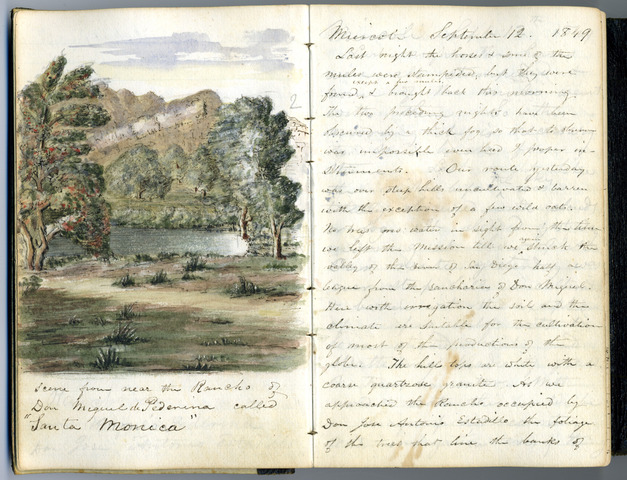 scene from near the Rancho of
Don Miguel de Pedrorina called
"Santa Monica"
2
September 12. 1849
Last night the horses & some of the
mules were stampeded, but they were
except a few mules
found, & brought back this morning.
The two preceding nights have been
obscured by a thick fog so that to observe
was impossible even had I proper in-
struments. Our route yesterday
was over steep hills uncultivated & barren
with the exception of a few wild oats.
No was no water in sight from the time
we left the Mission till we again struck the
valley of the river of San Diego half a
league from the rancheria of Don Miguel.
Here with irrigation the soil and the
climate are suitable for the cultivation
of most of the productions of the
globe. The hill tops are white with a
coarse quartzose granite. As we
approached the Rancho occupied by
Don Jose Antonio Estudillo the foliage
of the trees that line the banks of